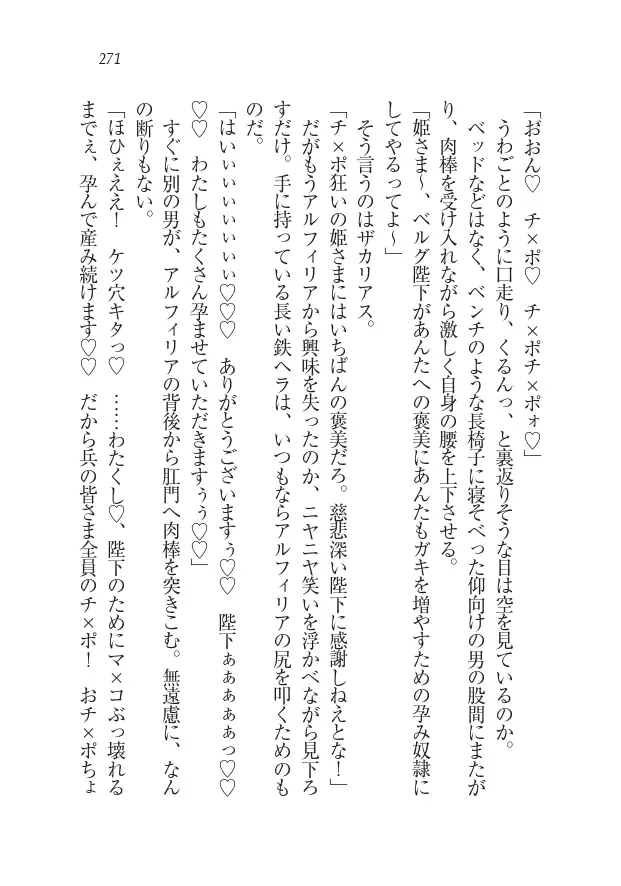 271
「おおん♡　チ×ポ♡　チ×ポチ×ポォ♡」
うわごとのように口走り、くるんっ、と裏返りそうな目は空を見ているのか。
ベッドなどはなく、ベンチのような長椅子に寝そべった仰向けの男の股間にまたが
り、肉棒を受け入れながら激しく自身の腰を上下させる。
「姫さま〜、ベルグ陛下があんたへの褒美にあんたもガキを増やすための孕み奴隷に
してやるってよ〜」
そう言うのはザカリアス。
「チ×ポ狂いの姫さまにはいちばんの褒美だろ。慈悲深い陛下に感謝しねえとな！」
だがもうアルフィリアから興味を失ったのか、ニヤニヤ笑いを浮かべながら見下ろ
すだけ。手に持っている長い鉄ヘラは、いつもならアルフィリアの尻を叩くためのも
のだ。
「はいぃぃぃぃぃぃぃ♡♡♡　ありがとうございますぅ♡♡　陛下ぁぁぁぁぁっ♡♡
♡♡　わたしもたくさん孕ませていただきますぅぅ♡♡」
すぐに別の男が、アルフィリアの背後から肛門へ肉棒を突きこむ。無遠慮に、なん
の断りもない。
「ほひぇええ！　ケツ穴キタっ♡　……わたくし♡、陛下のためにマ×コぶっ壊れる
までぇ、孕んで産み続けます♡♡　だから兵の皆さま全員のチ×ポ！　おチ×ポちょ